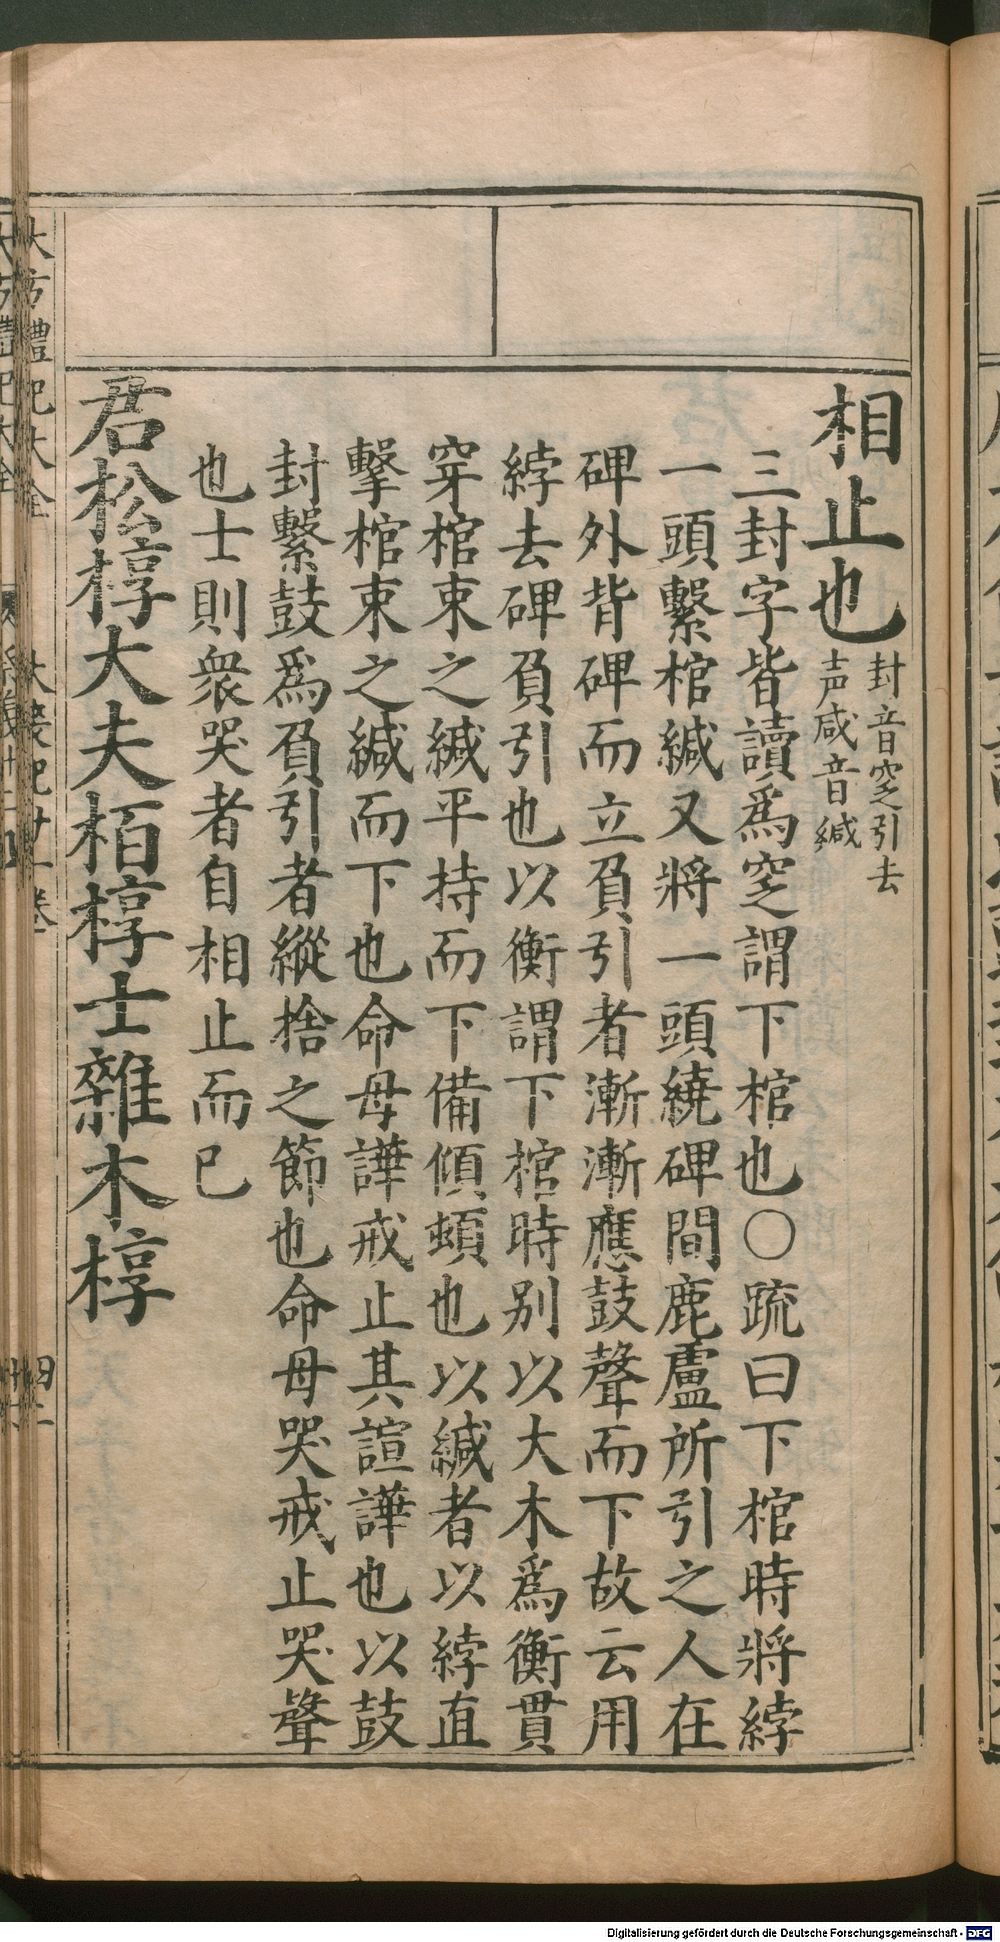 相止也封音窆引去声咸音緘
三封字皆讀爲窆謂下棺也〇疏曰下棺時將綍
一頭繫棺緘又將一頭繞碑間鹿盧所引之人在
碑外背碑而立負引者漸漸應鼓聲而下故云用
綍去碑負引也以衡謂下棺時別以大木爲衡貫
穿棺束之緘平持而下備傾頓也以緘者以綍直
擊棺束之緘而下也命毋譁戒止其諠譁也以鼓
封繫鼓爲負引者縱捨之節也命毋哭戒止哭聲
也士則衆哭者自相止而已
君松椁大夫栢椁士雜木椁
大方禮記大全
Digitalisierung gefördert durch die Deutsche Forschungsgemeinschaft - DFG